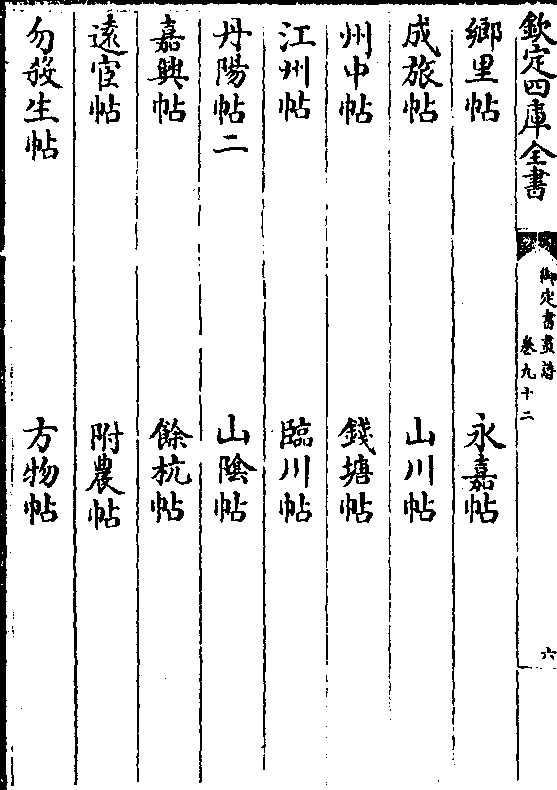 欽定四庫全書
御定書畫譜
卷九十二
六
鄉里帖 永嘉帖
成旅帖 山川帖
州中帖 錢塘帖
江州帖 臨川帖
丹陽帖二 山陰帖
嘉興帖 餘杭帖
遠宦帖 附農帖
勿發生帖 方物帖